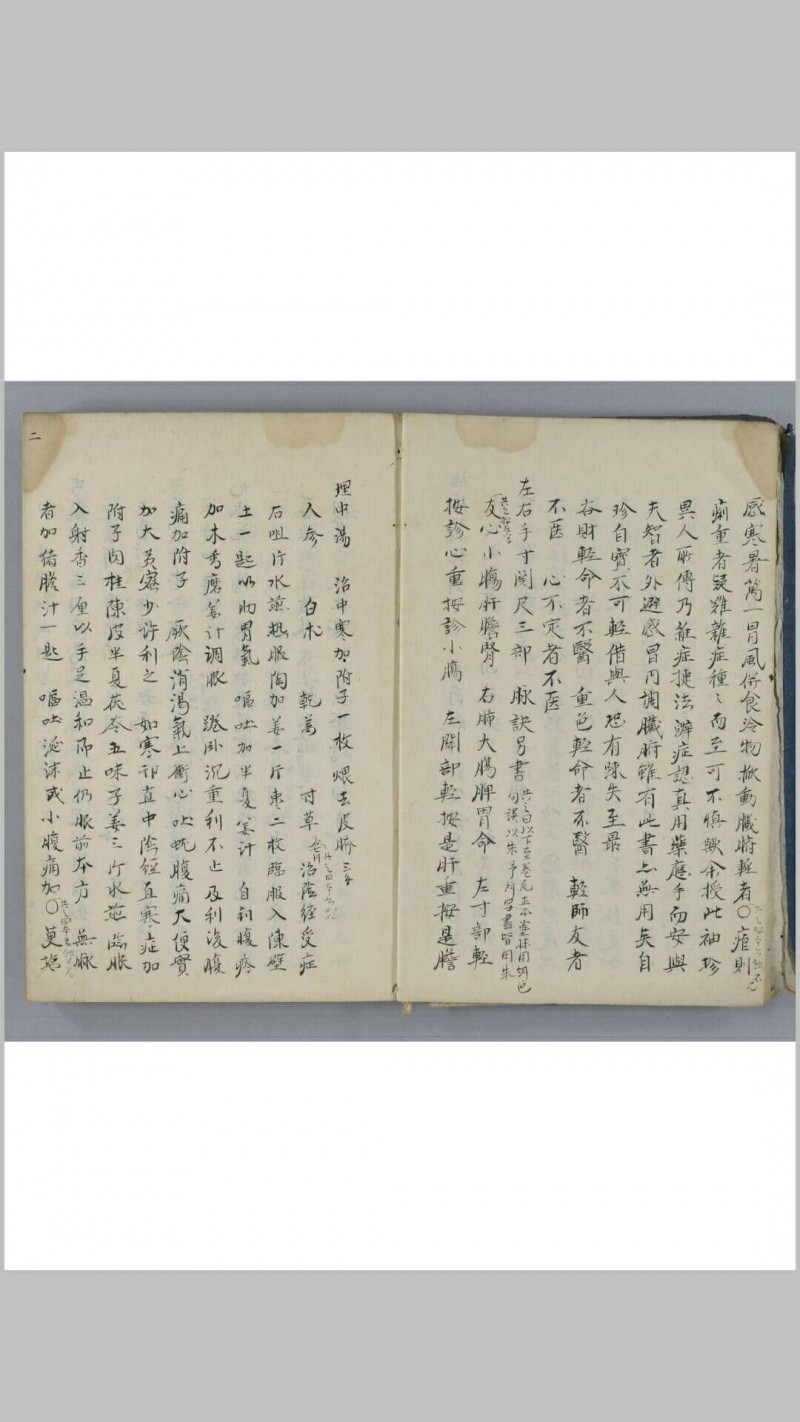 感寒暑萬一冒風併食冷物掀動臟腑輕者〇瘧則
痢重者疑難雜症種〻而至可不慎歟余授此袖珍
異人所傳乃雜症捷法辨症認真用藥應手而安與
夫智者外避感冒内調臟腑雖有此書亦無用矣自
珍自寶不可輕借與人恐有踈失至最
吝財輕命者不醫 重色輕命者不醫 輕師友者
不医 心不定者不医
左右手寸関尺三部 脉訣另書
心小腸肝膽腎 右肺大腸脾胃命 左寸部輕
按診心重按診小腸 左関部輕按是肝重按是膽
二
理中湯 治中寒加附子一枚煨去皮臍
人参 白术 乾姜 甘草 治陰經受症
右咀片水煎熱服陶加姜一斤枣二枚臨服入陳壁
土一匙以助胃氣 嘔吐加半夏姜汁 自利腹疼
加木香磨姜汁調服 踡卧沉重利不止 及利後腹
痛加附子 厥陰消渴氣上衝心吐蚘腹痛大便實
加大黄蜜少許利之 如寒邪直中陰經直寒症加
附子肉桂陳皮半夏茯苓五味子姜三片水煎臨服
入射香三厘以手足温和即止仍服前本方 無脉
者加猪膽汁一匙 嘔吐涎沫或小腹痛加〇茰塩